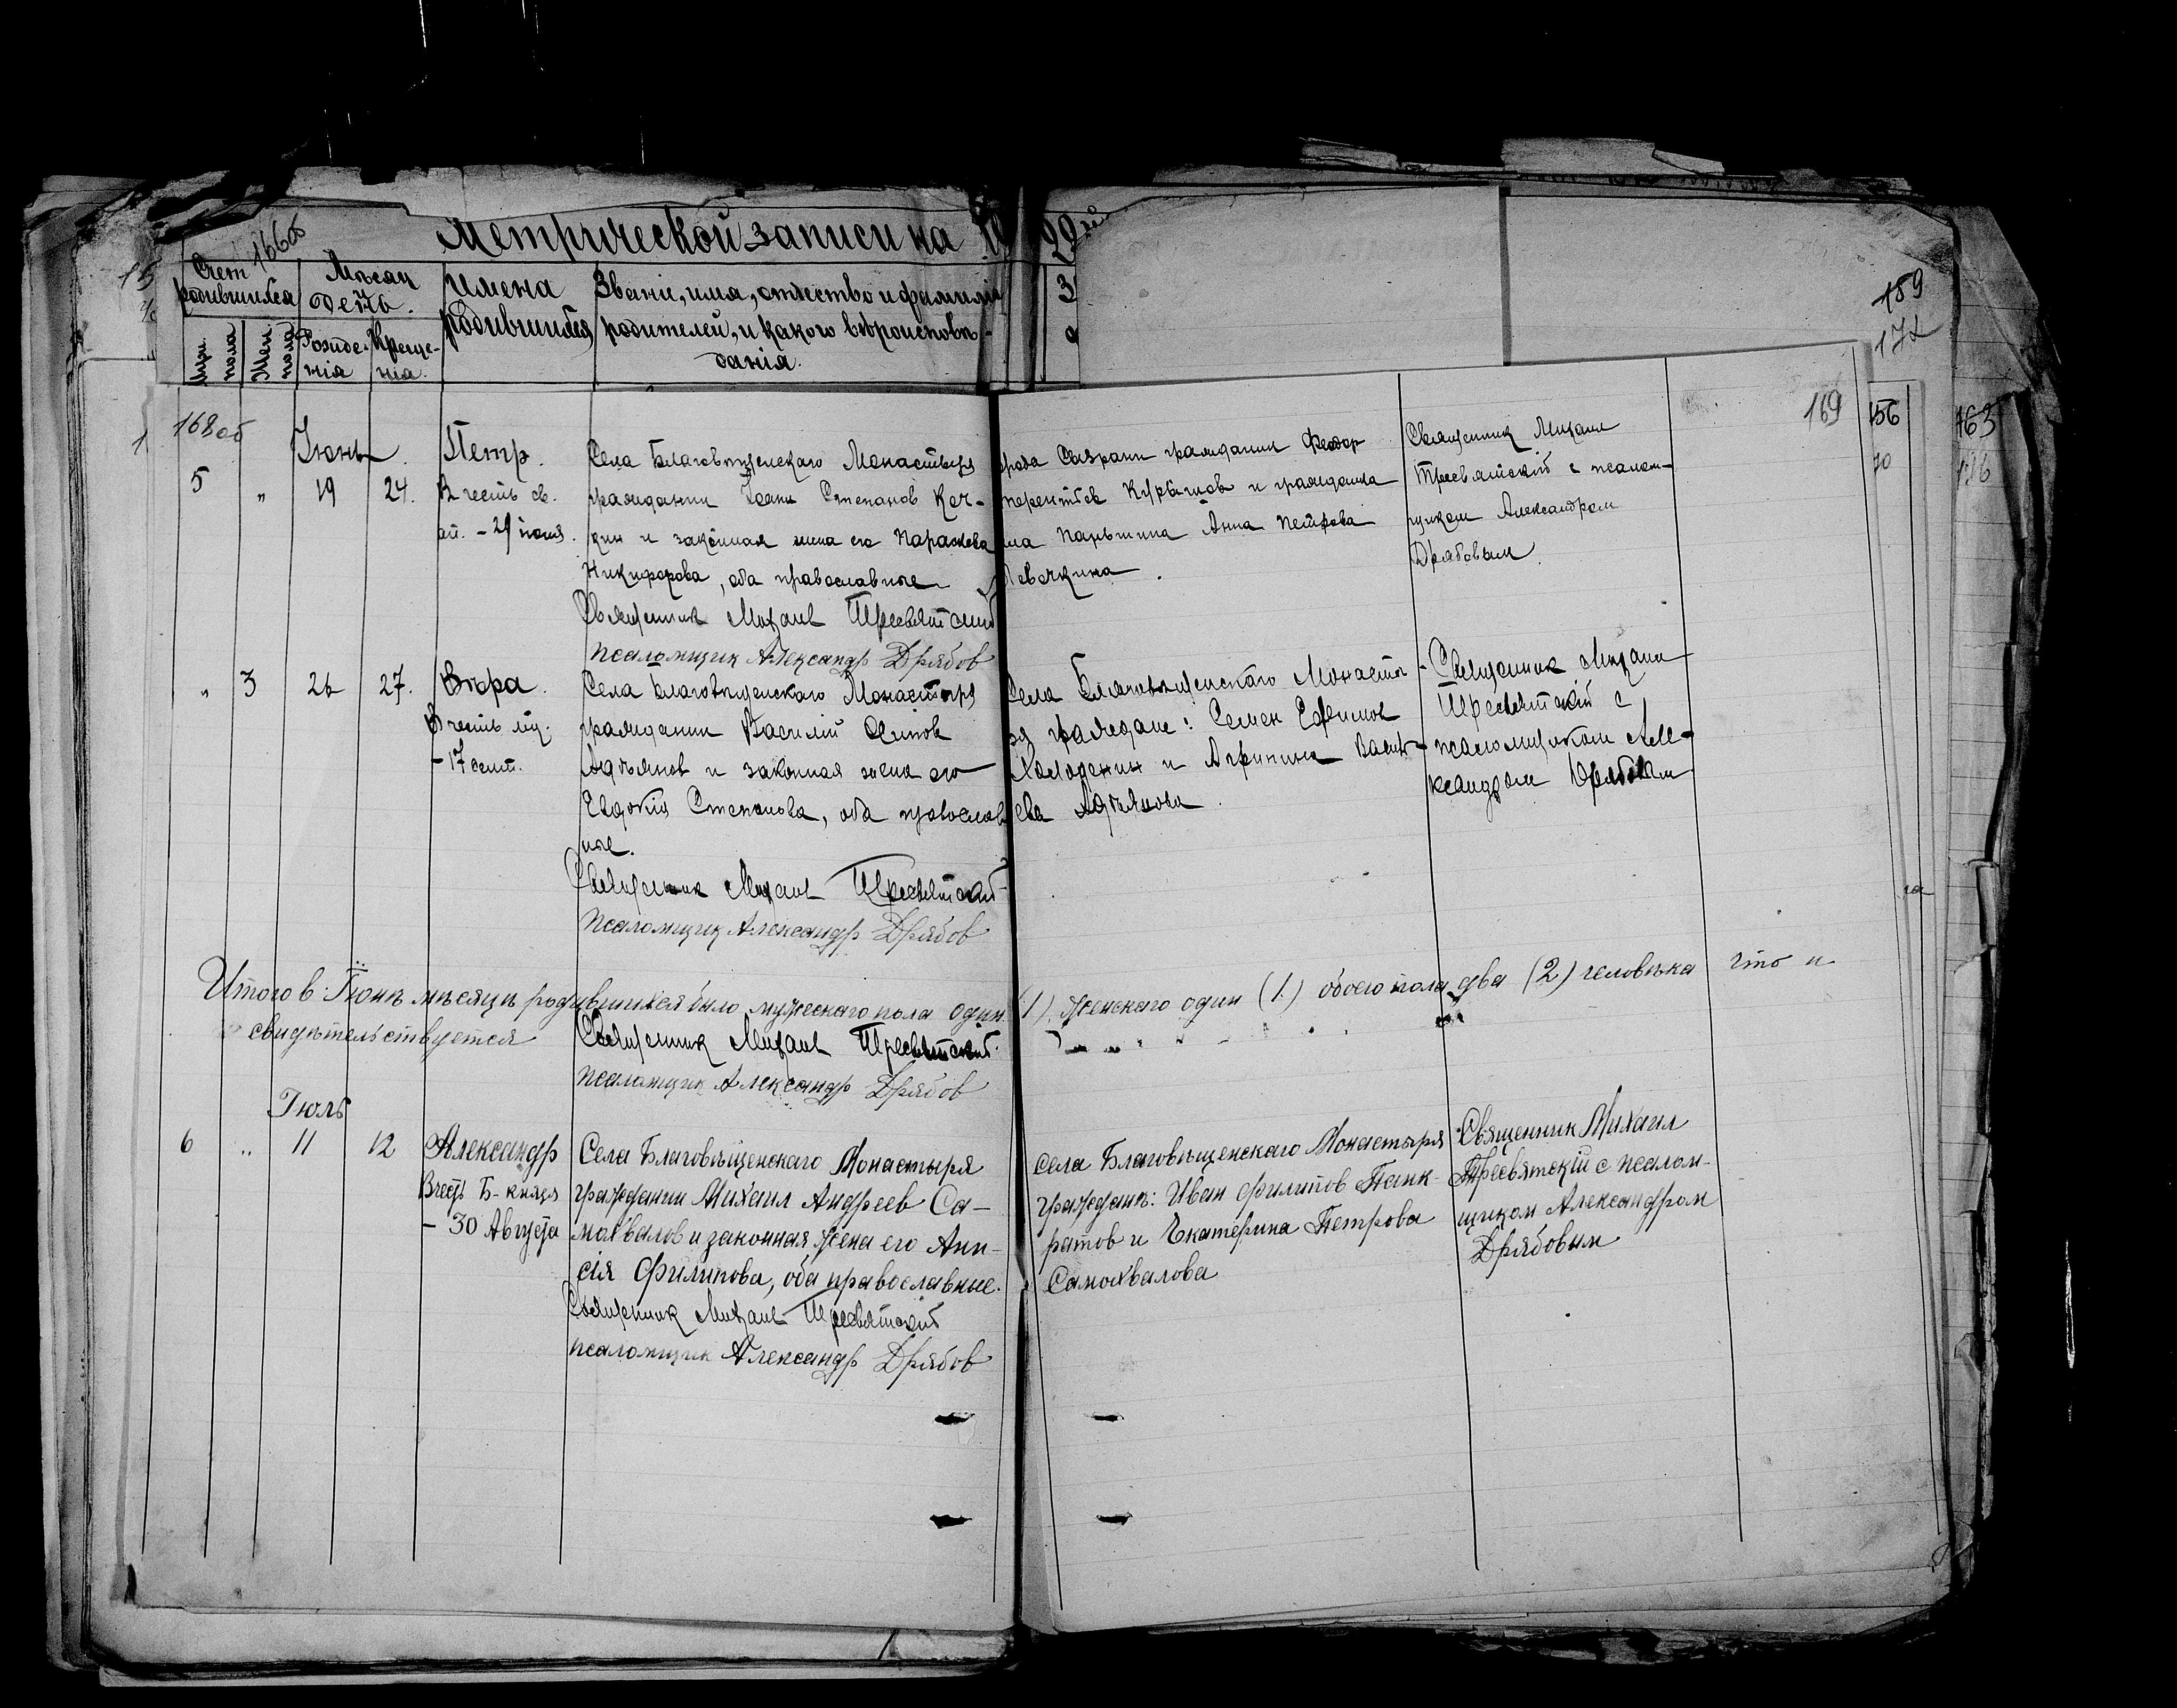 Метрической записи на 19 22 й
166об
Счет родившихся
Мѣсяц день.
Имена родившихся
Званіе, имя, отчество и фамилія родителей, и какого вѣроисповѣ-
данія.
Муж. пола
Жен. пола
Рожде-
нія
Креще-
нія.
189
172
169
156
70
163
168об
Іюнь.
5 " 19 24.
Петр.
В честь св.
ап. - 29 июня.
Села Благовѣщенскаго Монастыря
гражданин Іоанн Степанов Коч-
кин и законная жена его Параскева
Никифорова, оба православные
Священник Михаил Пресвятский
Псаломщик Александр Дрябов
города Сызрани гражданин Феодор
Терентьев Курышов и гражданка
Анна Петрова
Левочкина.
Священник Михаил
Тресвятскій с псалом-
щиком Александром
Дрябовым.
" 3 26 27.
Вѣра.
В честь му.
- 17 сент.
Села Благовѣщенскаго Монастыря
гражданин Василий Осипов
Адріянов и законная жена его
Евдокія Степанова, оба православ
ные.
Священник Михаил Тресвятский
Псаломщик Александр Дрябов
Села Благовѣщенскаго Монасты-
ря граждане: Семен Ефимов
Холоденин и Агрипина Василь-
ева Адріянова.
Священник Михаил
Тресвятский с
псаломщиком Але-
ксандром Дрябовым
Итого в Іюнѣ мѣсяцѣ родившихся было мужескаго пола один (1). женскаго один (1) обоего пола два (2) человѣка что и
свидѣтельствуется
Священник Михаил Тресвятский
Псаломщик Александр Дрябов
Іюль
6 " 11 12
Александр
В честь Б. князя
- 30 Августа
Села Благовѣщенскаго Монастыря
гражданин Михаил Андреев Са-
мохвалов и законная жена его Ани-
сія Филипова, оба православные.
Священник Михаил Тресвятский
Псаломщик Александр Дрябов
Села Благовѣщенскаго Монастыря
гражданѣ: Иван Филипов Панк-
ратов и Екатерина Петрова
Самохвалова
Священник Михаил
Тресвятскій с псалом-
щиком Александром
Дрябовым